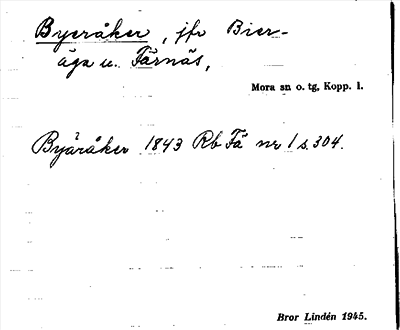 Byeråker, jfr Bier-
åga u. Färnäs,
Mora sn o. tg, Kopp. l.
Byåråker 1843 Rb Fä nr 1 s. 304.
Bror Lindén 1945.